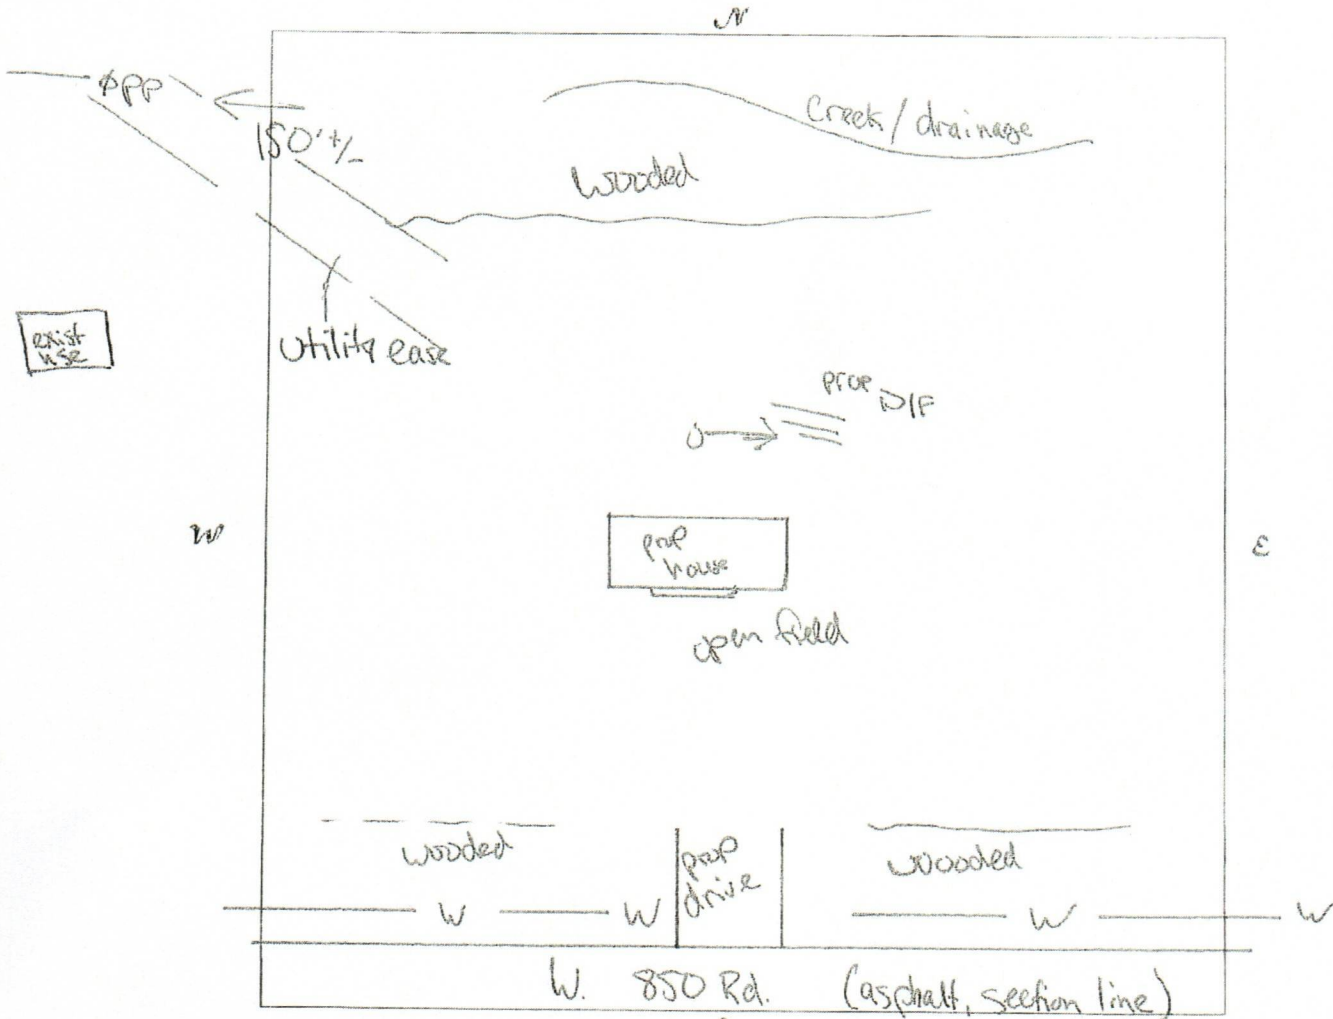 N
ϕPP
150'+/-
Creek/drainage
Wooded
exist
hse
Utility ease
prop
D/F
W
prop
house
E
open field
wooded
prop
drive
woooded
W
W
W
W
W. 850 Rd. (asphalt, section line)